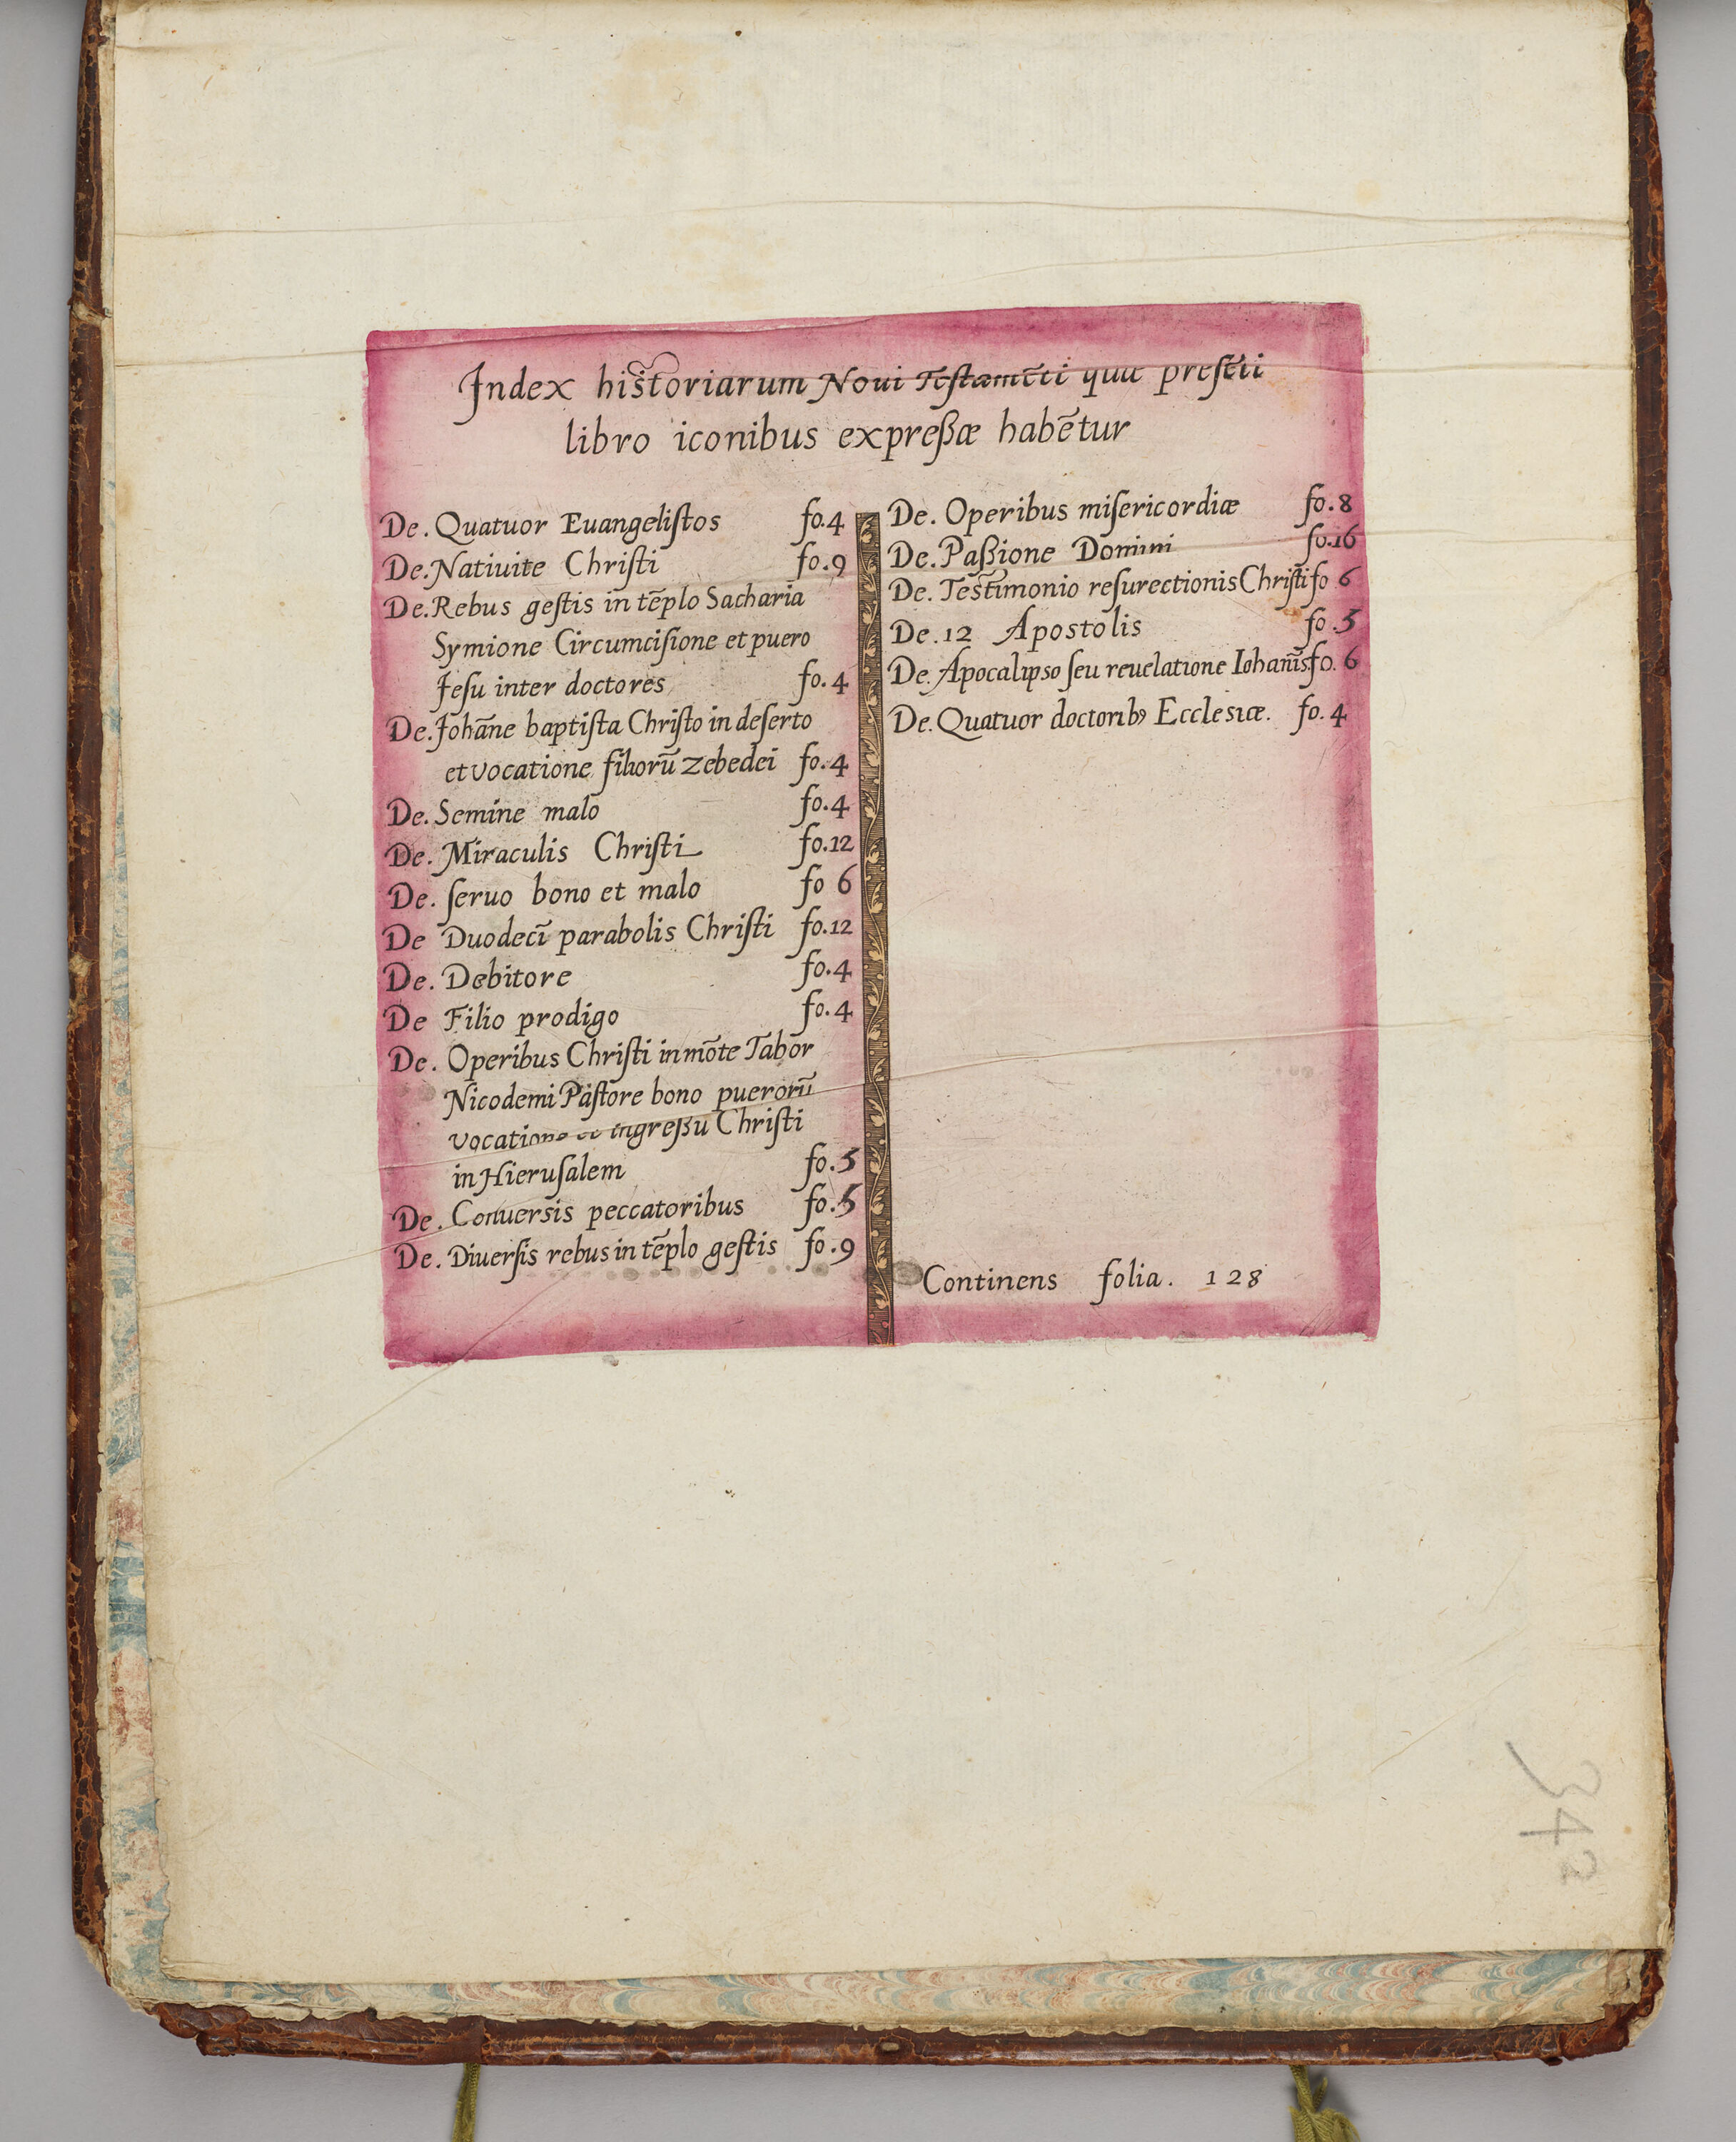 Index historiarum Noui Testamēti quæ presēti
libro iconibus expreßæ habētur
De. Quatuor Euangelistos fo.4
De. Natiuite Christi fo.9
De. Rebus gestis in tēplo Sacharia
Symione Circumcisione et puero
Jesu inter doctores fo.4
De. Johāne baptista Christo in deserto
et vocatione filiorū Zebedei fo.4
De. Semine malo fo.4
De. Miraculis Christi fo.12
De. seruo bono et malo fo 6
De Duodecī parabolis Christi fo.12
De. Debitore fo.4
De Filio prodigo fo.4
De. Operibus Christi in mōte Tabor
Nicodemi Pastore bono puerorū
vocatione et ingreßu Christi
in Hierusalem fo.5
De. Conuersis peccatoribus fo.5
De. Diuersis rebus in tēplo gestis fo.9
De. Operibus misericordiæ fo.8
De. Paßione Domini fo.16
De. Testimonio resurectionis Christi fo 6
De. 12 Apostolis fo.5
De. Apocalipso seu reuelatione Iohanīs fo. 6
De. Quatuor doctoribꝰ Ecclesiæ. fo. 4
Continens folia. 128